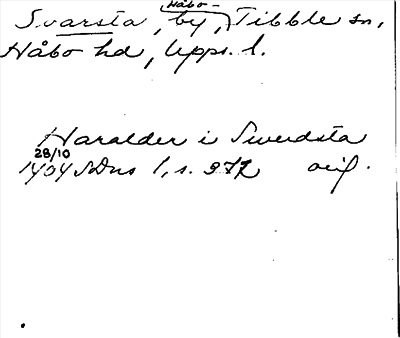 Svarsta, by, Håbo-Tibble sn,
Håbo hd, Upps. l.
Haralder i Swerdsta
28/10
1404 SDns 1, s. 272 orig.